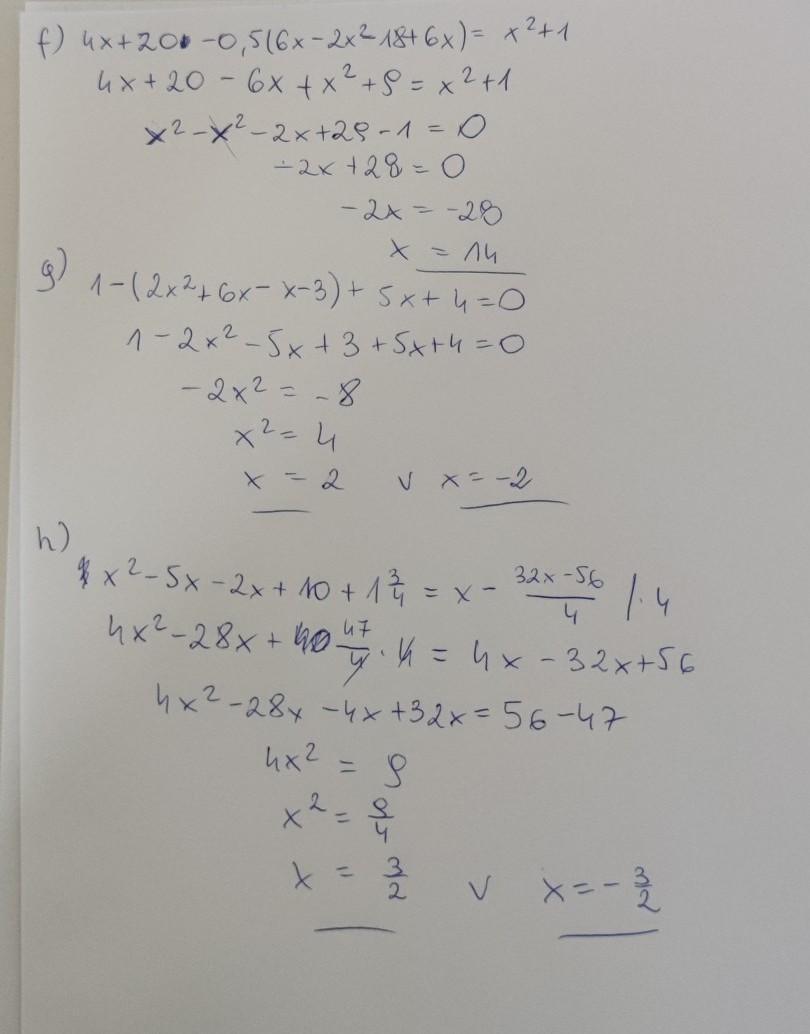 f) 4x+20 -0,5(6x-2x²-18+6x) = x²+1
4x+20 - 6x + x² + 9 = x²+1
x² - x² - 2x + 29 - 1 = 0
-2x + 28 = 0
-2x = -28
x = 14
g) 1-(2x²+6x-x-3) + 5x+4=0
1 - 2x² - 5x + 3 + 5x+4=0
-2x² = -8
x² = 4
x = 2 v x = -2
h)
x² - 5x - 2x + 10 + 1 3/4 = x - (32x-56)/4 /·4
4x² - 28x + 47/4 · 4 = 4x - 32x+56
4x² - 28x - 4x + 32x = 56 - 47
4x² = 9
x² = 9/4
x = 3/2 v x = - 3/2